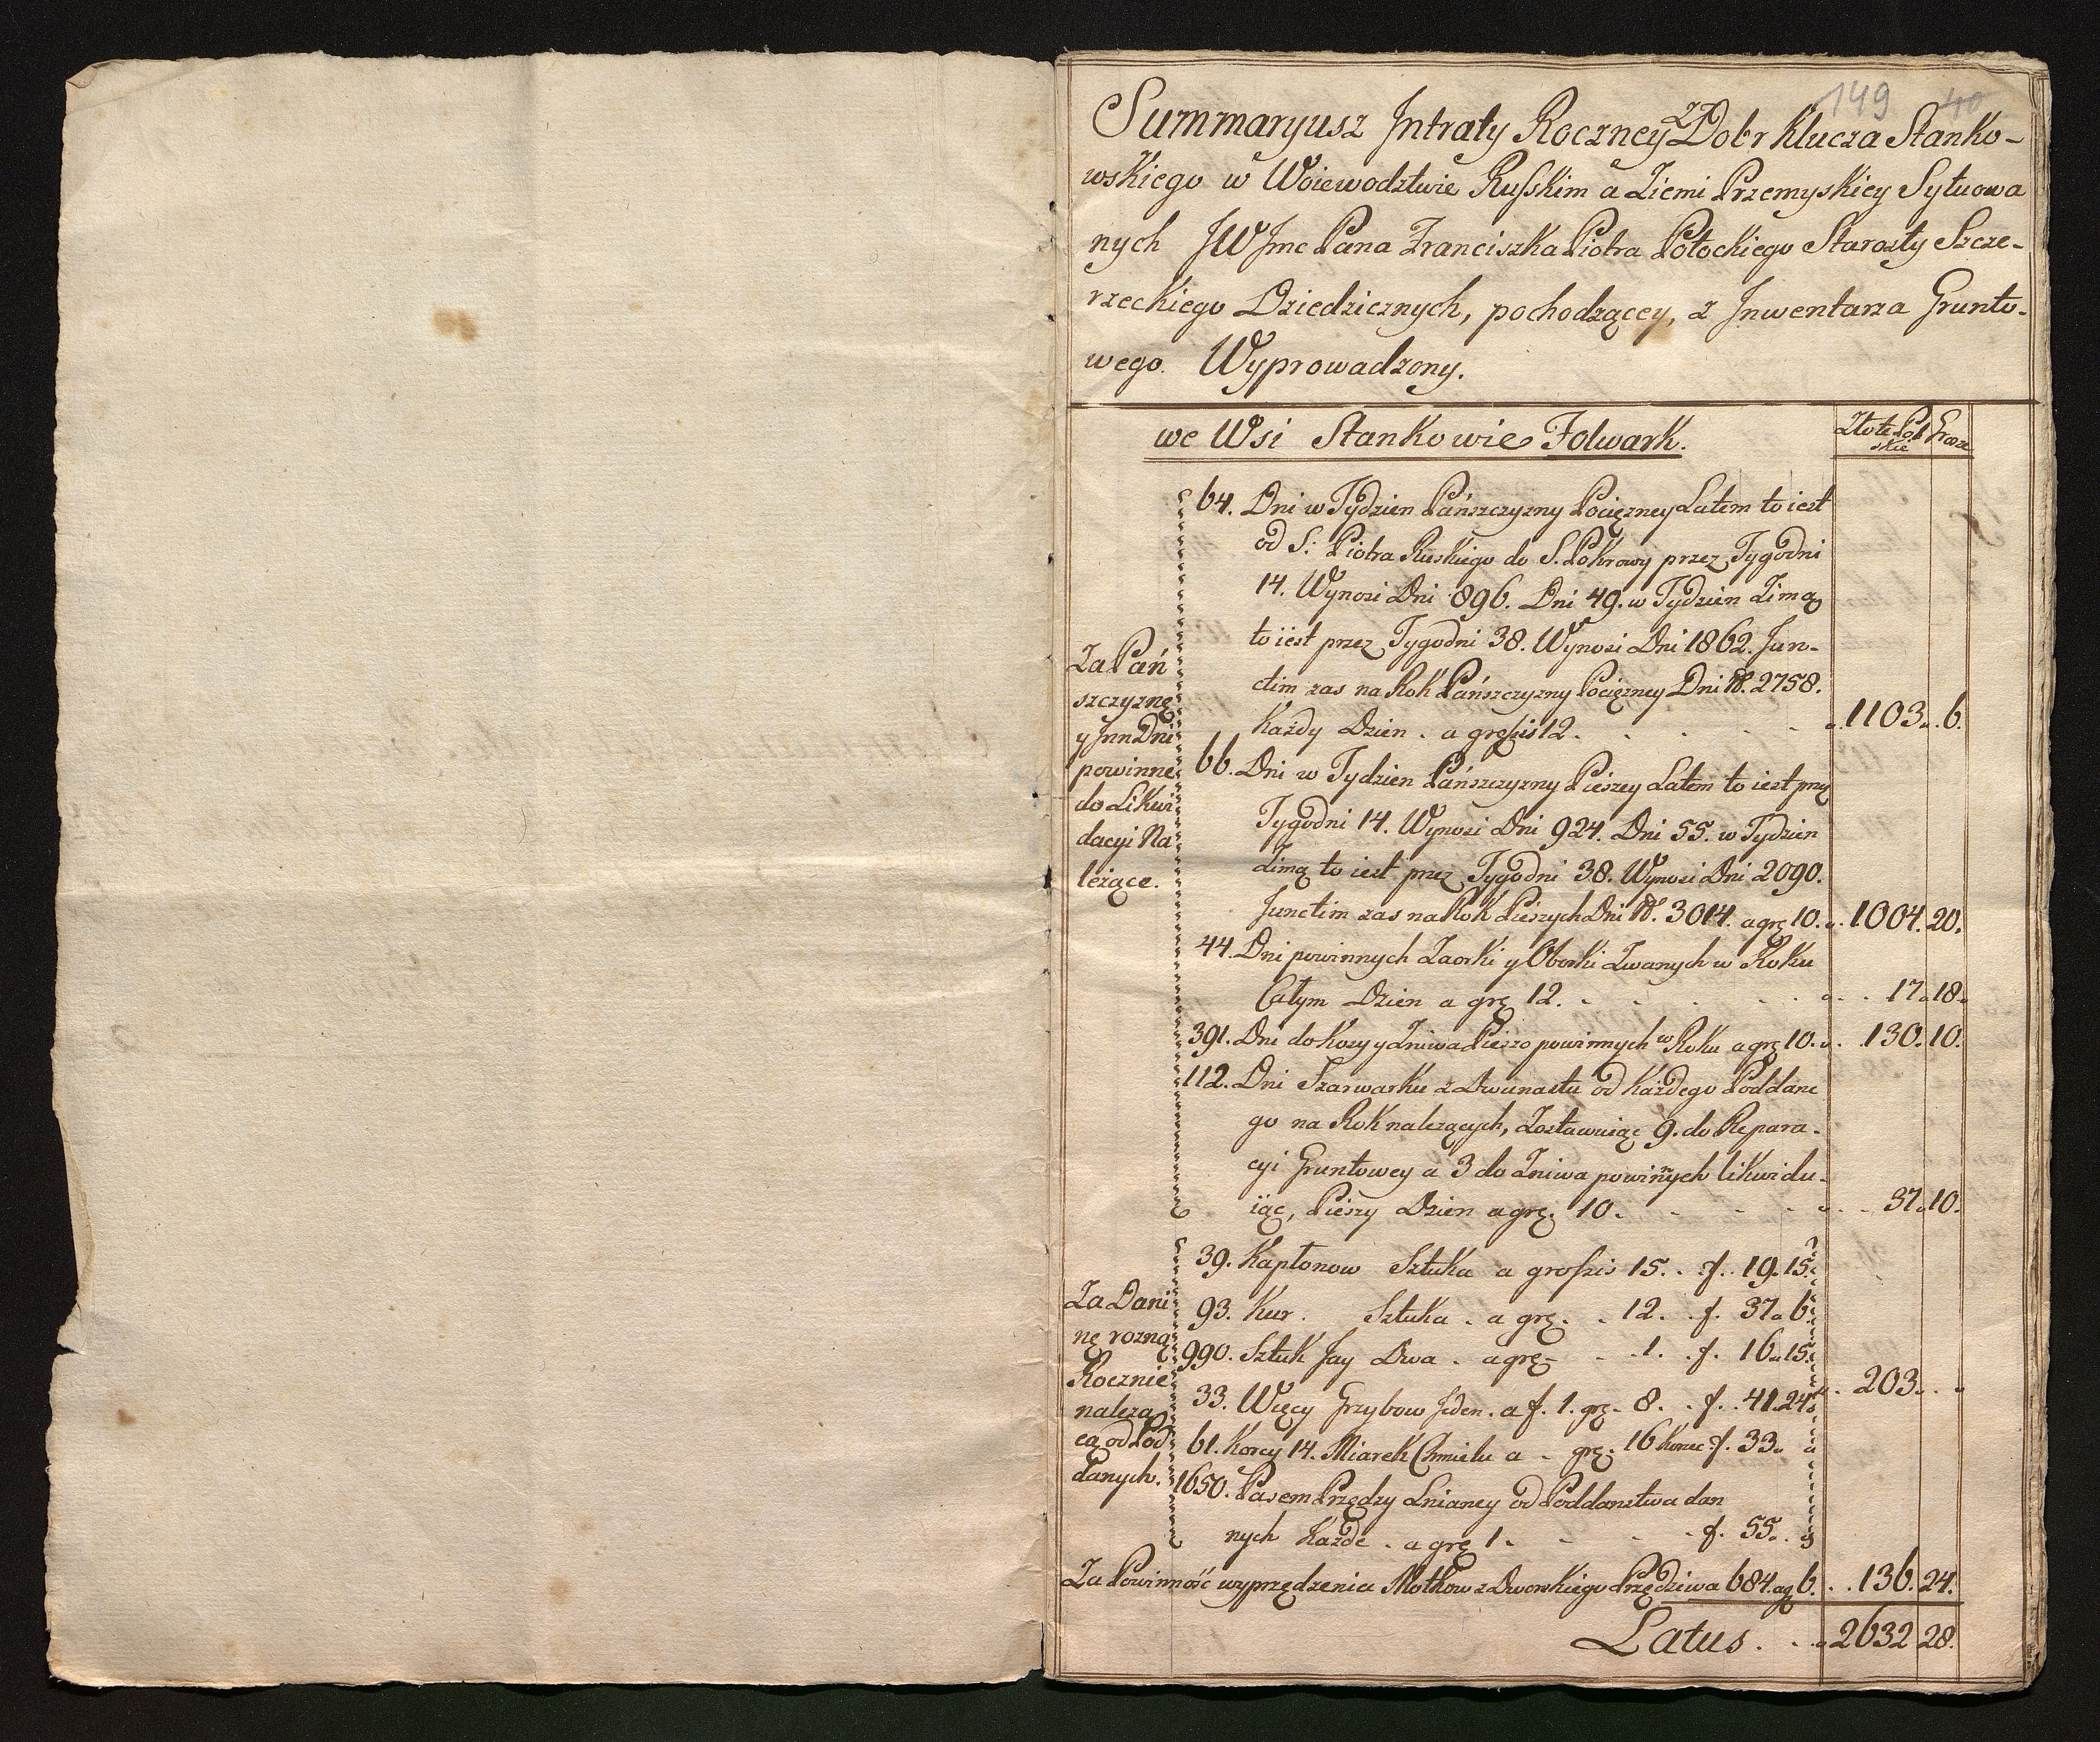 149 40
Summaryusz Jntraty Roczney z Dobr Klucza Stanko-
wskiego w Woiewodztwie Ruskim a Ziemi Przemyskiey Sytuowa
nych JW Jmc Pana Franciszka Piotra Potockiego Starosty Szcze-
rzeckiego Dziedzicznych, pochodzącey, z Jnwentarza Grunto-
wego. Wyprowadzony.
we Wsi Stankowie Folwark.
Złote Pol Grosze
skie
64. Dni w Tydzien Pańszczyzny Pocięzney Latem to iest
od S: Piotra Ruskiego do S. Pokrowy przez Tygodni
14. Wynosi Dni 896. Dni 49. w Tydzien Zimą
to iest przez Tygodni 38. Wynosi Dni 1862. Jun-
ctim zas na Rok Pańszczyzny Pocięzney Dni No. 2758.
Każdy Dzien . a groszis 12. 1103. 6.
Za Pań
szczyznę
y Jnn Dni
powinne
do Likwi
dacyi Na
leżące.
66. Dni w Tydzien Pańszczyzny Pieszey Latem to iest prze
Tygodni 14. Wynosi Dni 924. Dni 55. w Tydzien
Zimą to iest przez Tygodni 38. Wynosi Dni 2090.
Junctim zas na Rok Pieszych Dni No. 3014. a grę 10. 1004. 20.
44. Dni powinnych Zaorki y Oborki Zwanych w Roku
Całym Dzien a grę 12. 17. 18.
391. Dni do Kosy y Zniwa Pieszo powinnych w Roku a grę 10. 130. 10.
112. Dni Szarwarku z Dwunastu od Każdego Poddane
go na Rok należących, Zostawuiąc 9. do Repara-
cyi Gruntowey a 3 do Zniwa powinnych likwidu-
iąc, Pieszy Dzien a grę. 10. 37. 10.
39. Kapłonow Sztuka a groszis 15. f. 19. 15.
Za Dani
nę rozną
Rocznie
nalezą
cą od Pod
danych.
93. Kur. Sztuka . a grę. 12. f. 37. 6.
990. Sztuk Jay Dwa . a grę 1. f. 16. 15.
33. Więcy Grzybow Jeden . a f. 1. grę. 8. f. 41. 24. 203.
61. Korcy 14. Miarek Chmielu a grę. 16 Korzec f. 33.
1650. Pasem Przędzy Lnianey od Poddanstwa dan
nych Każde . a grę 1. f. 55.
Za Powinność wyprzędzenia Motkow z Dworskiego Przędziwa 684. a g 6. 136. 24.
Latus. 2632 28.